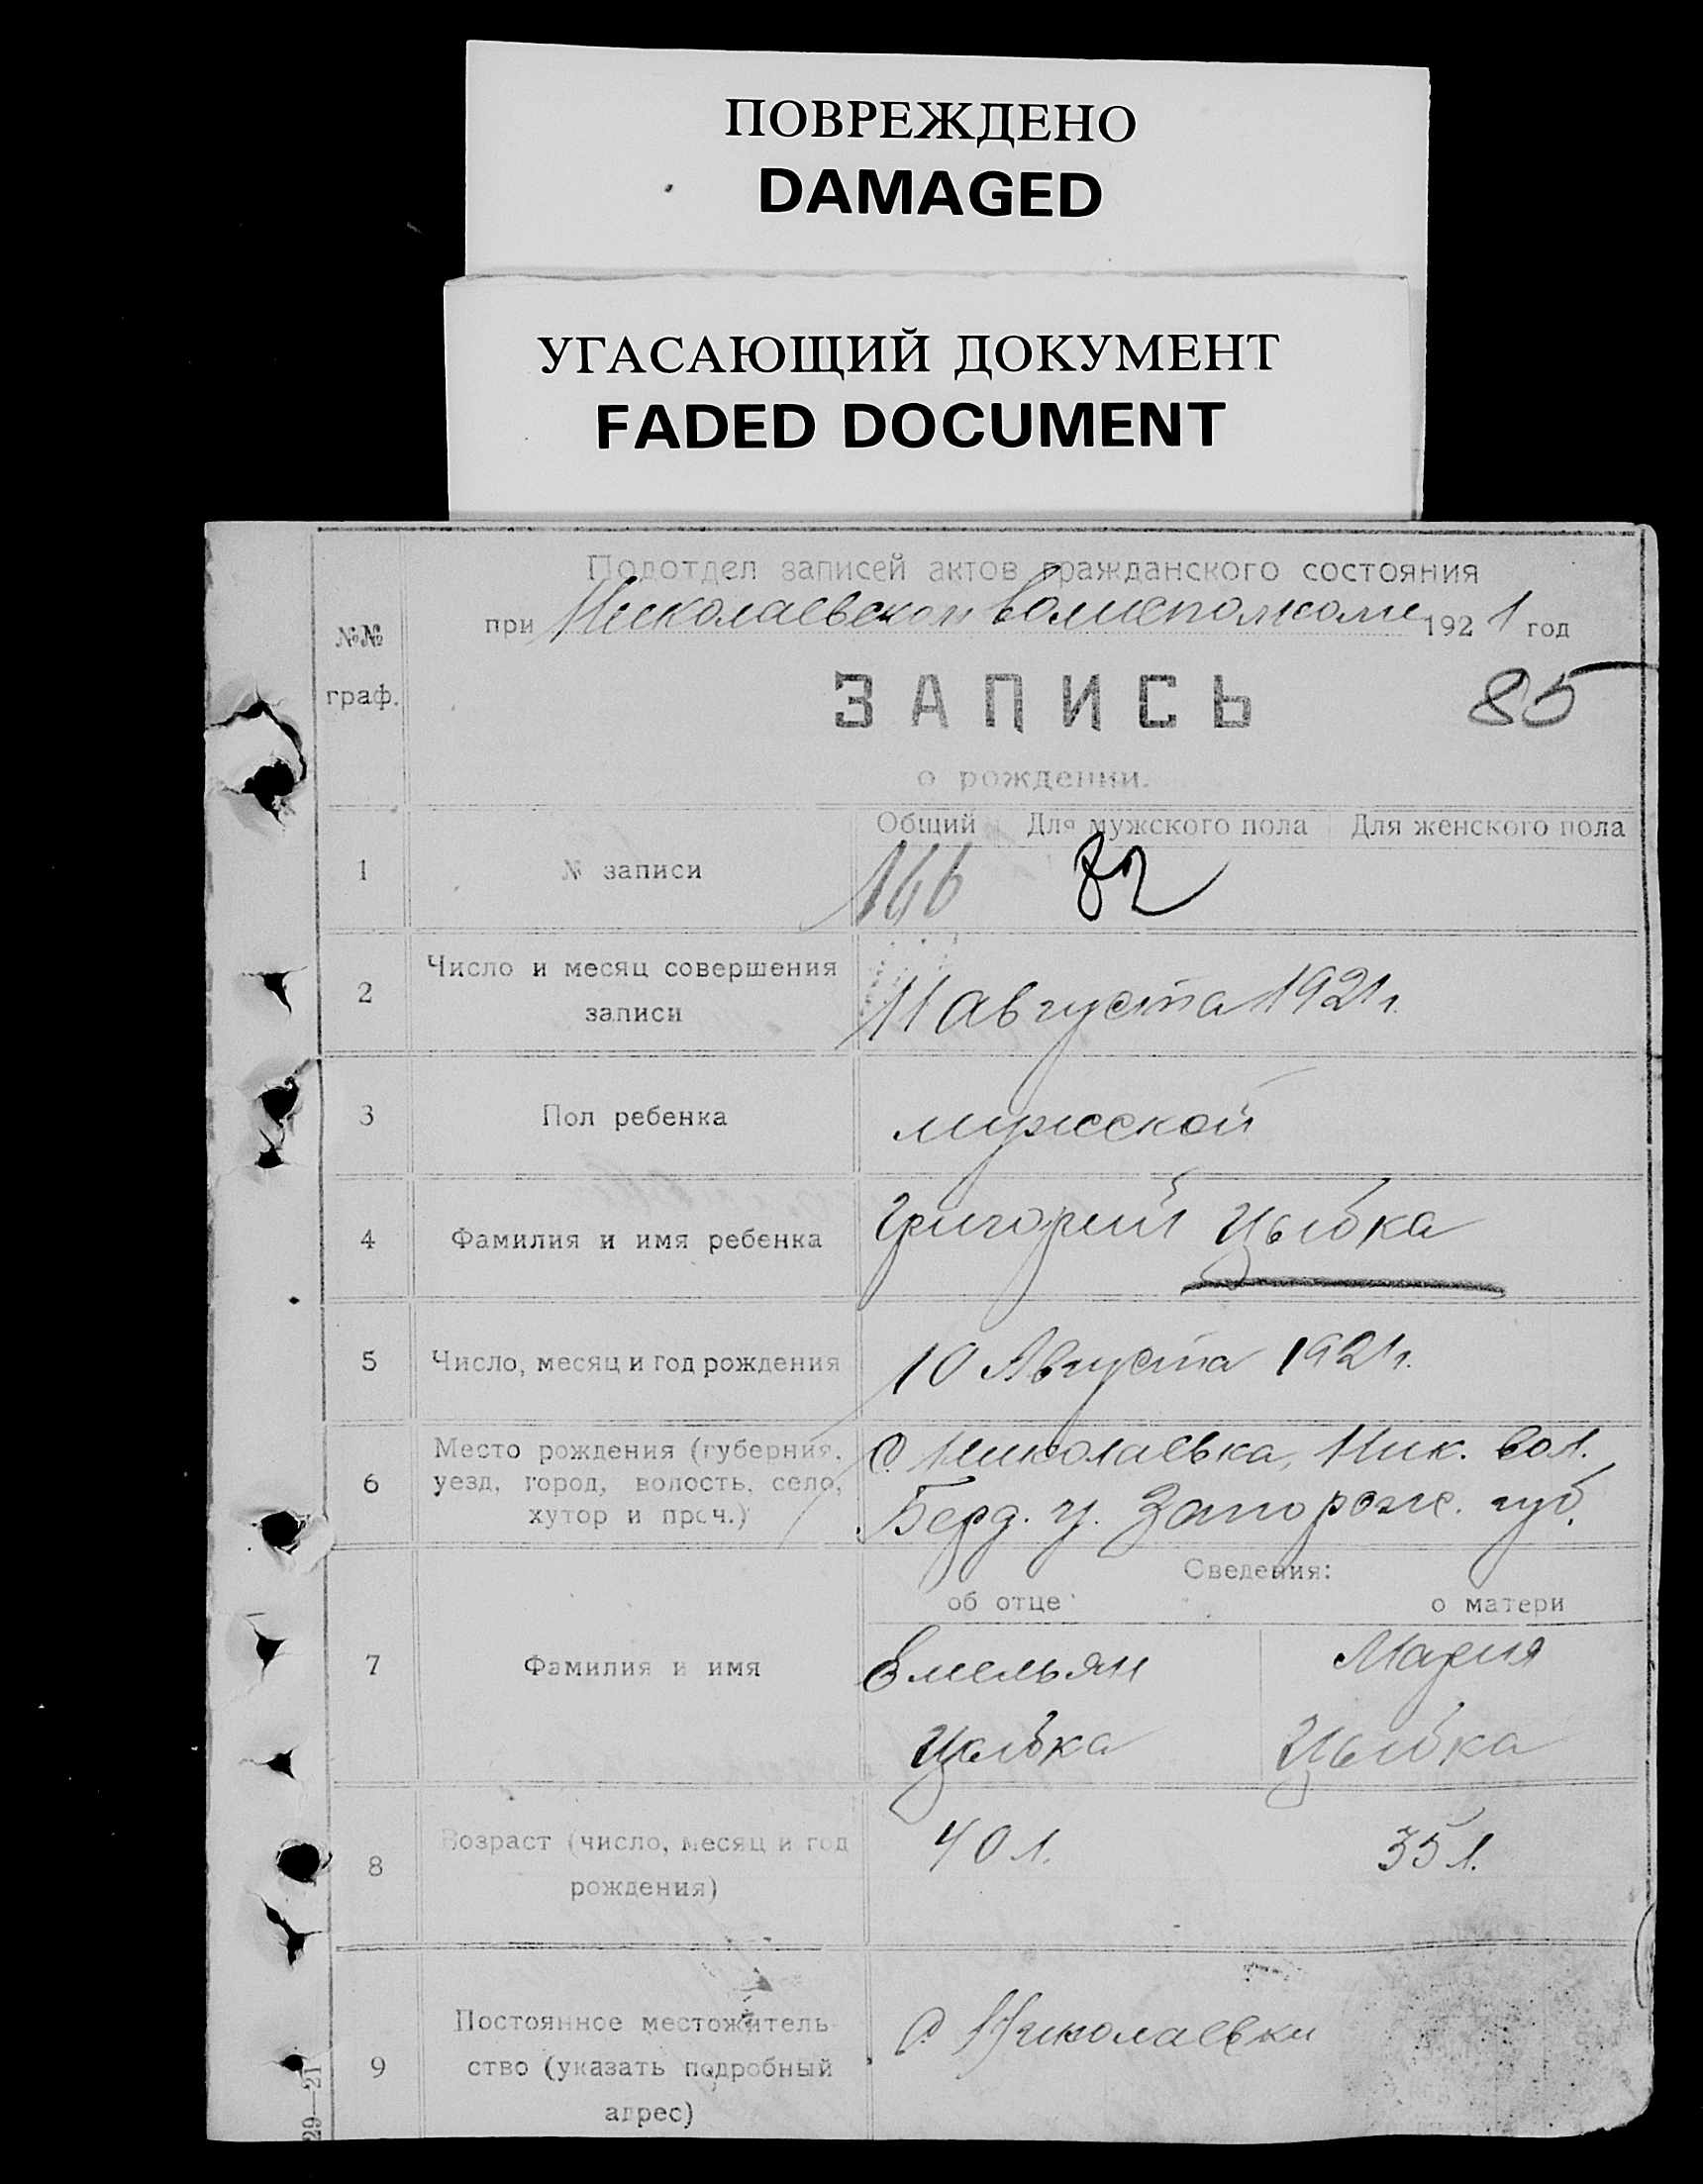 ПОВРЕЖДЕНО
DAMAGED
УГАСАЮЩИЙ ДОКУМЕНТ
FADED DOCUMENT
Подотдел записей актов гражданского состояния
при Николаевском Волисполкоме 1921 год
№№ граф.
ЗАПИСЬ
85
о рождении.
Общий Для мужского пола Для женского пола
1 № записи 146 82
2 Число и месяц совершения
записи
11 Августа 1921 г.
3 Пол ребенка мужской
4 Фамилия и имя ребенка Григорий Цыбка
5 Число, месяц и год рождения 10 Августа 1921 г.
6 Место рождения (губерния,
уезд, город, волость, село,
хутор и проч.)
с. Николаевка, Ник. вол.
Берд. у. Запорож. губ.
Сведения:
об отце о матери
7 Фамилия и имя
Емельян Мария
Цыбка Цыбка
8 Возраст (число, месяц и год
рождения)
40 л. 35 л.
9 Постоянное местожитель-
ство (указать подробный
адрес)
с. Николаевки
29—21